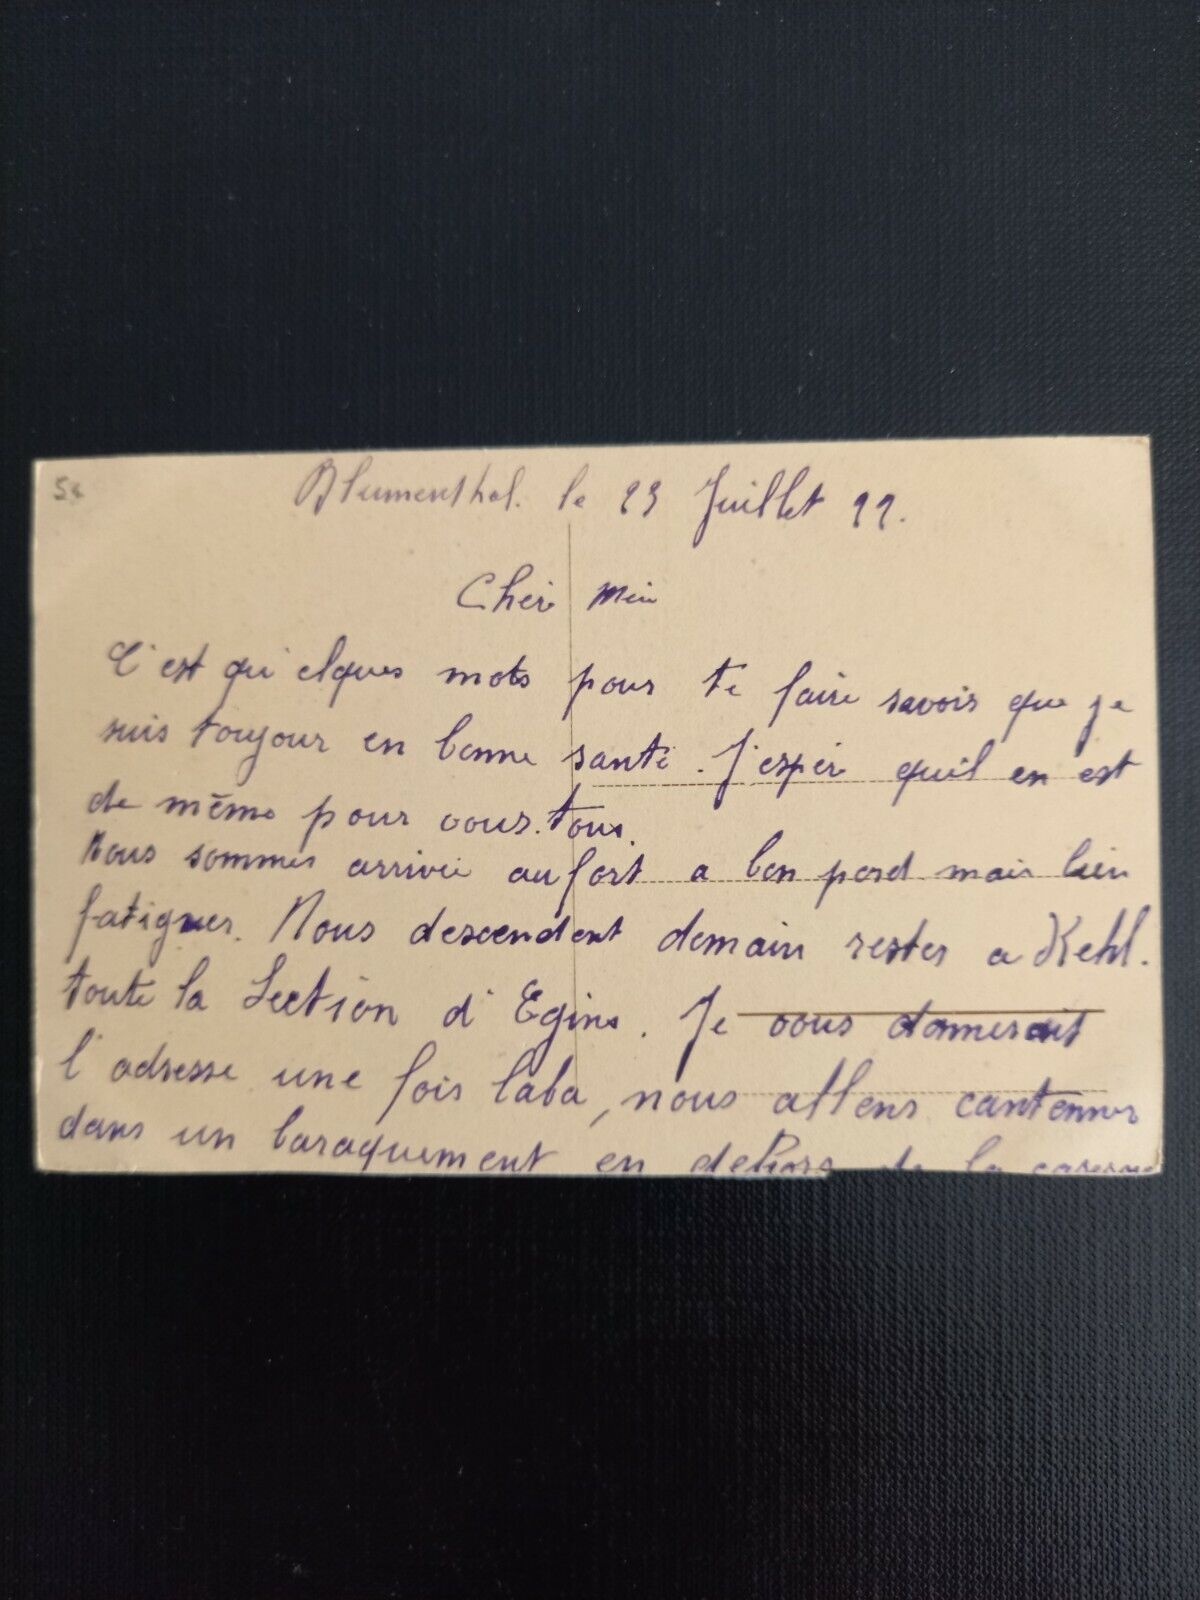 5€
Blumenthal. le 23 Juillet 22.
Cher
C'est qu'elques mots pour te faire savoir que je
suis toujour en bonne santé. J'esper quil en est
de même pour vous tous.
Nous sommes arrivée au fort a bon pord mais bien
fatiguer. Nous descendent demain rester a Kehl.
toute la Section d'Egins. Je vous donnerait
l'adresse une fois laba, nous allons cantonner
dans un baraquement en dehors de la caserne